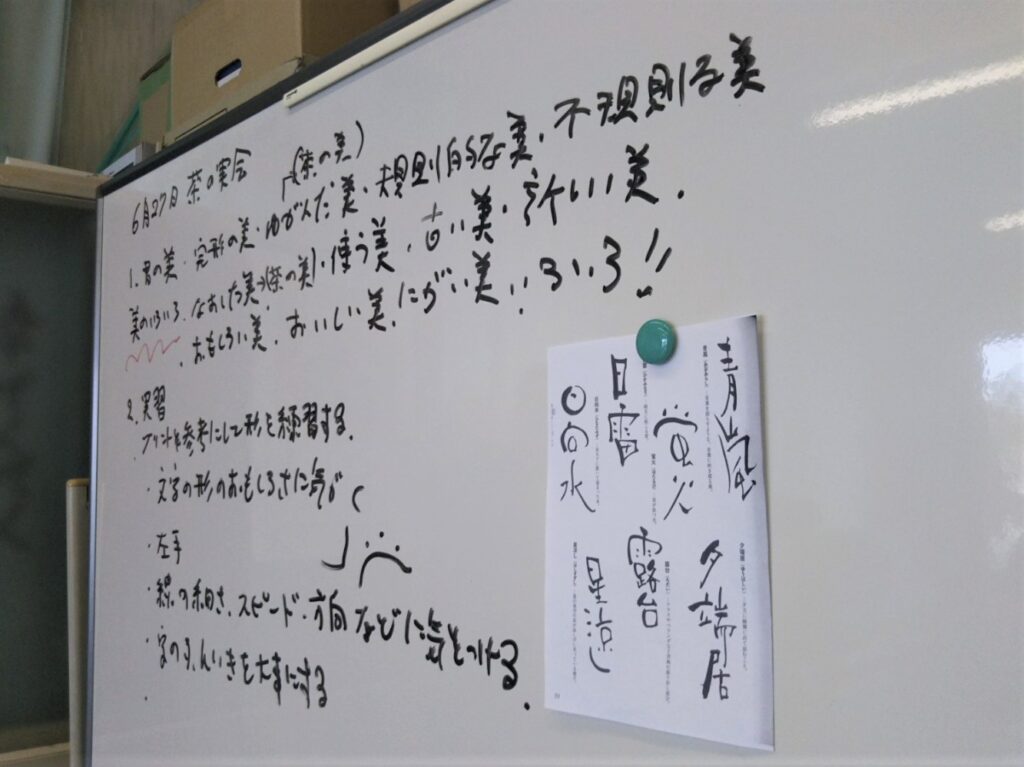 6月27日 茶の実会 (茶の美)
1. 君の美・完形の美・ゆがんだ美、規則的な美、不規則る美
美のいろいろ、なおした美→(茶の美)・使う美、古い美・新しい美.
、おもしろい美、おいしい美、にがい美、いろいろ!!
2. 実習
プリントを参考にして形を練習する.
・文字の形のおもしろさに気がく
・左手
・線の細さ、スピード・方向などに気をつける.
・字のふんいきを大事にする
青嵐
蛍火
日雷
日向水
夕端居
露台
星涼し